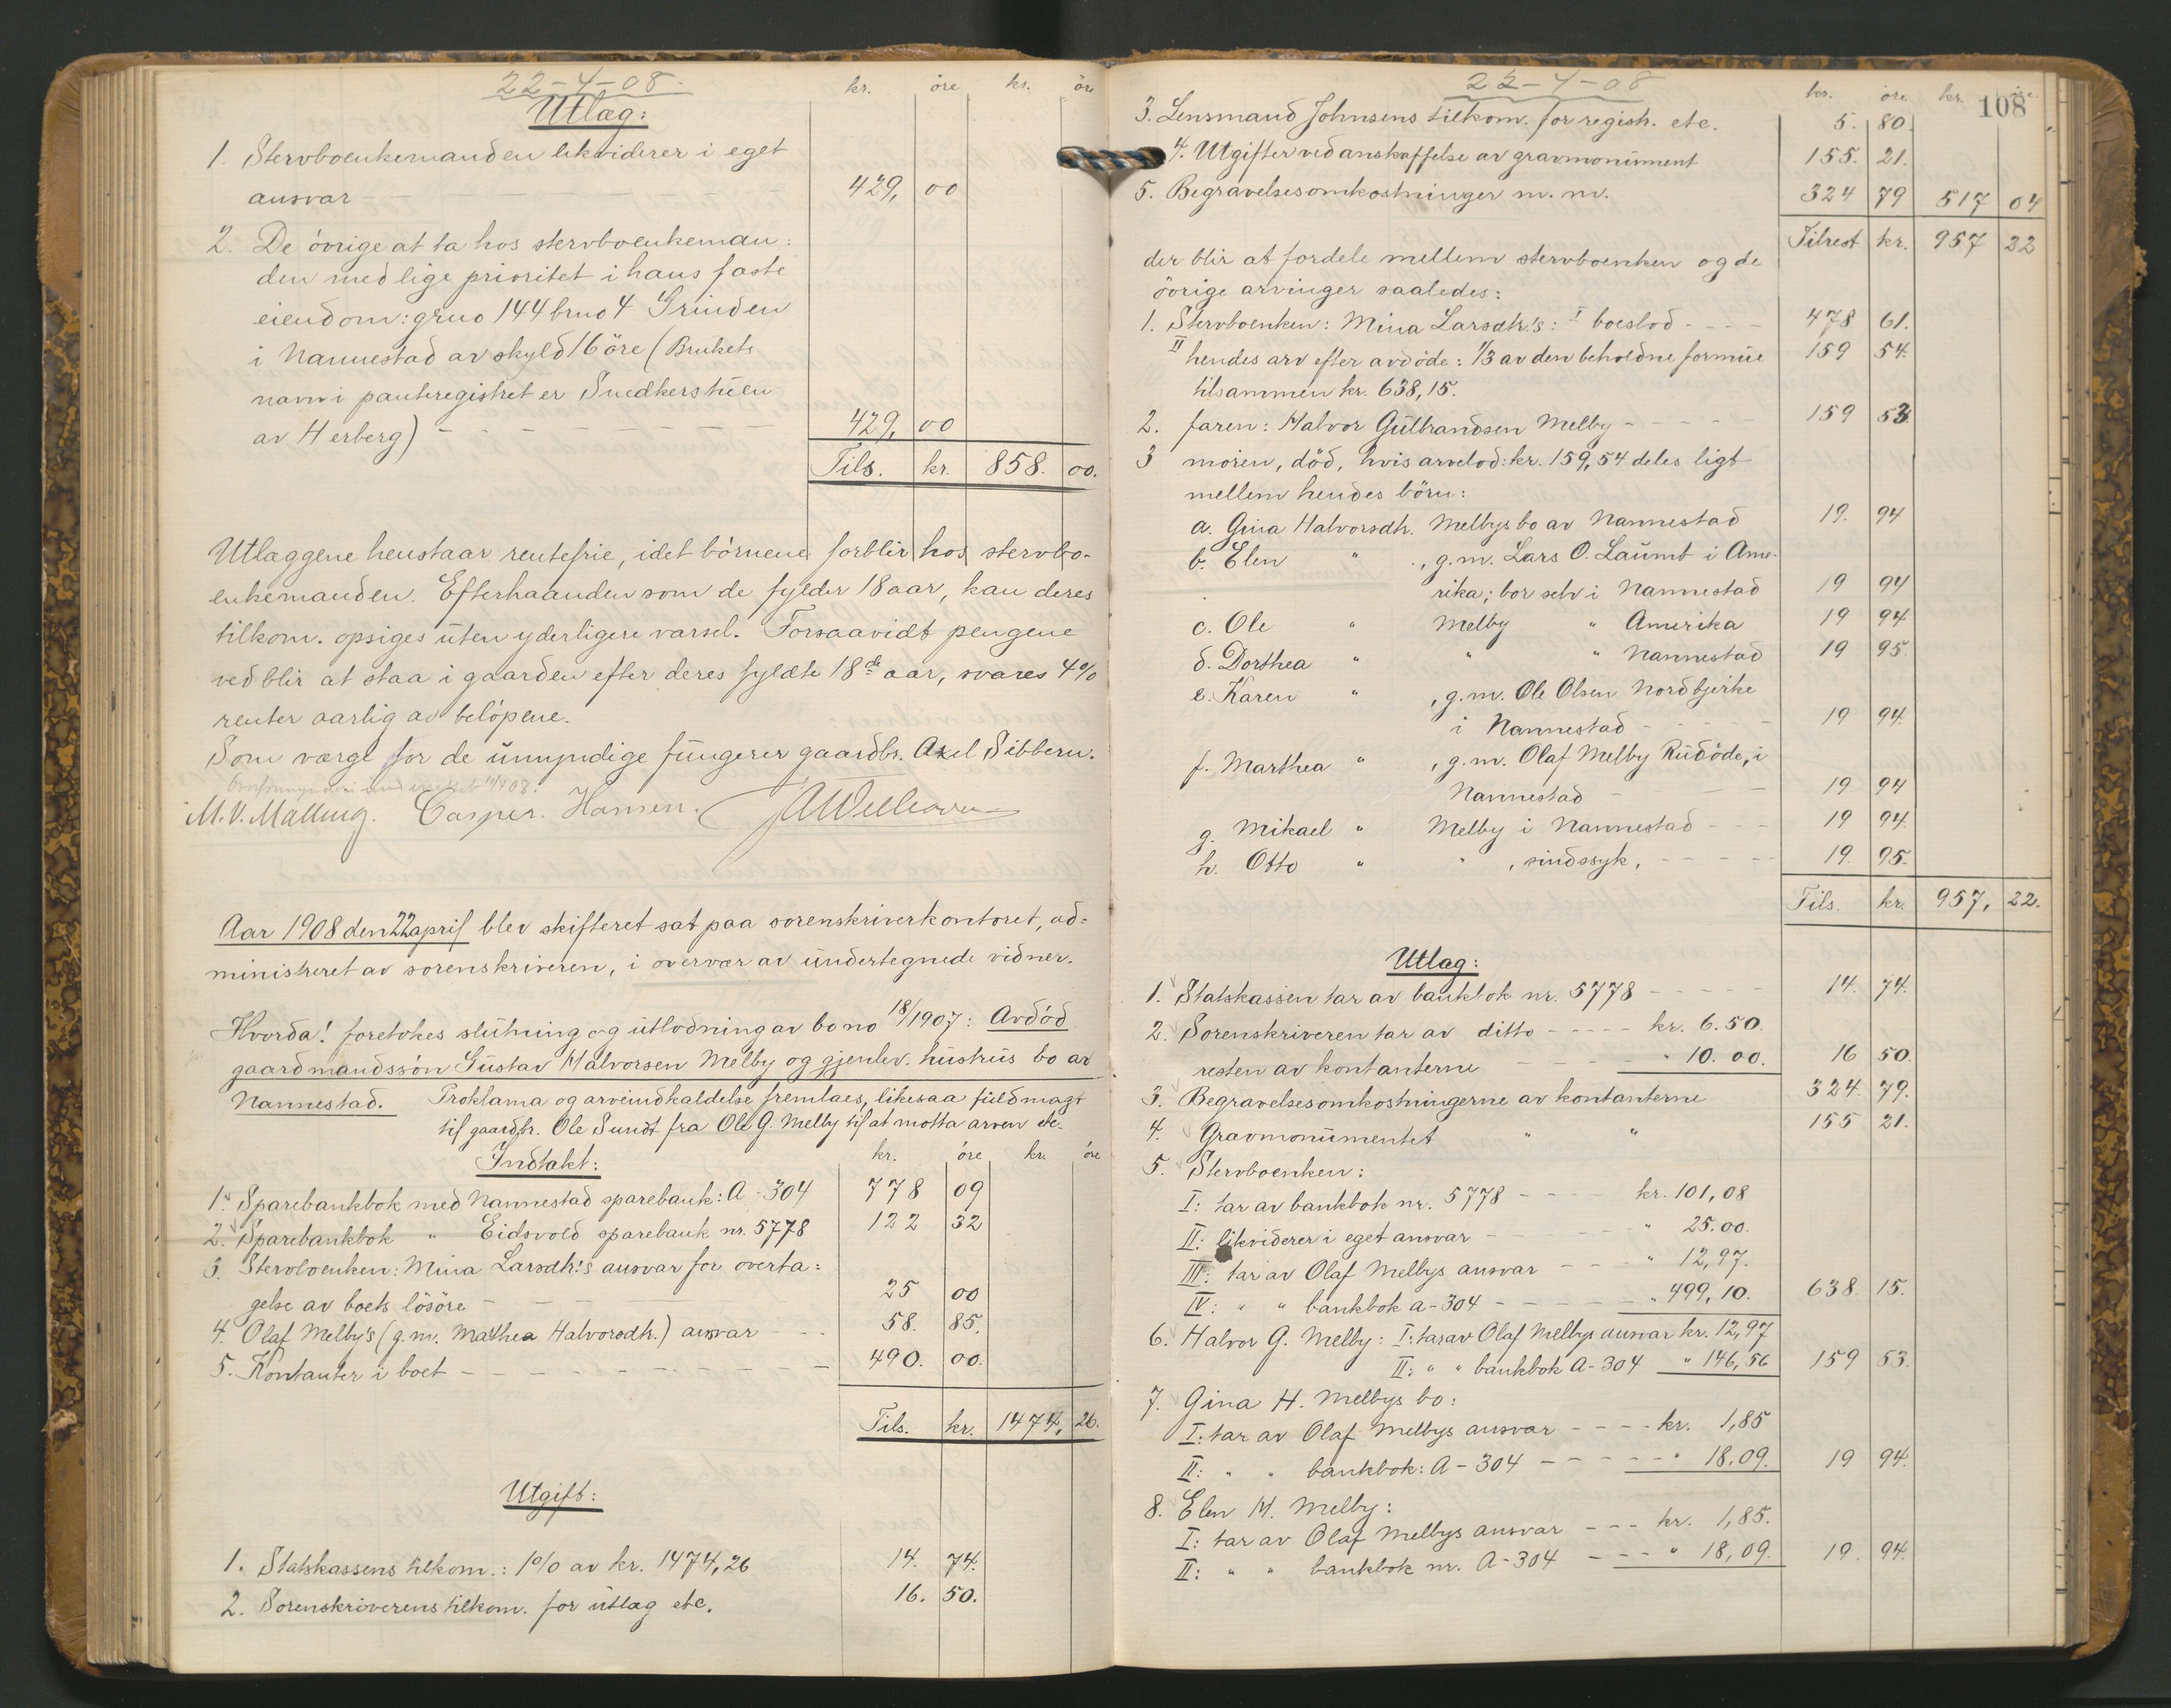 22-4-08.
kr. öre kr. öre
Utlæg:
1. Stervboenkemanden likviderer i eget
ansvar - - 429, 00
2. De övrige at ta hos stervboenkeman=
den med lige prioritet i hans faste
eiendom: gruo 144 bruo 4 Grinden
i Nannestad av skyld 16 öre (Brukets
navn i panteregistret er Snedkerstuen
av Herberg) - - - - - - - - 429, 00
Tils. kr. 858. 00.
Utlæggene henstaar rentefrie, idet börnene forblir hos stervbo-
enkemanden. Efterhaanden som de fylder 18 aar, kan deres
tilkom. opsiges uten yderligere varsel. Forsaavidt pengene
vedblir at staa i gaarden efter deres fyldte 18de aar, svares 4%
renter aarlig av belöpene.
Som værge for de umyndige fungerer gaardbr. Axel Sibbern.
M. V. Malling. Casper. Hansen.
Aar 1908 den 22 april blev skifteret sat paa sorenskriverkontoret, ad=
ministreret av sorenskriveren, i overvær av undertegnede vidner.
Hvorda! foretokes slutning og utlodning av bo no 18/1907: Avdöd
gaardmandssön Gustav Halvorsen Melby og gjenlev. hustrus bo av
Nannestad. Proklama og arveindkaldelse fremlaes, likesaa fuldmagt
til gaardbr. Ole Sundt fra Ole G. Melby til at motta arven etc.
Indtækt: kr. öre kr. öre
1. Sparebankbok med Nannestad sparebank: A-304 778 09
2. Sparebankbok " Eidsvold sparebank nr. 5778 122 32
3. Stervboenken: Mina Larsdtr.'s ansvar for overta=
gelse av boets lösöre - - - 25 00
4. Olaf Melby's (g.m. Mathea Halvorsdtr.) ansvar - - - 58. 85.
5. Kontanter i boet - - - - - - - - - 490. 00.
Tils. kr. 1474, 26.
Utgift:
1. Statskassens tilkom.: 1% av kr. 1474,26 14. 74.
2. Sorenskriverens tilkom. for utlæg etc. 16. 50.
22-4-08
kr. öre kr. öre
108
3. Lensmand Johnsens tilkom. for registr. etc. 5. 80.
4. Utgifter ved anskaffelse av gravmonument 155. 21.
5. Begravelsesomkostninger m. m. 324 79 517 04
Tilrest kr. 957 22
der blir at fordele mellem stervboenken og de
övrige arvinger saaledes:
1. Stervboenken: Mina Larsdtr.'s: I boeslod - - - 478 61.
II hendes arv efter avdöde: 1/3 av den beholdne formue 159 54.
tilsammen kr. 638,15.
2. faren: Halvor Gulbrandsen Melby - - - - 159 53
3 moren, död, hvis arvelod: kr. 159,54 deles ligt
mellem hendes börn:
a. Gina Halvorsdtr. Melbys bo av Nannestad 19. 94
b. Elen " , g.m. Lars O. Laumb i Ame-
rika; bor selv i Nannestad 19 94
c. Ole " Melby " Amerika 19 94
d. Dorthea " " " Nannestad 19 95
e. Karen " , g.m. Ole Olsen Nordbjerke
i Nannestad - - - - - 19 94.
f. Marthea " , g.m. Olaf Melby Rudöde, i
Nannestad - - - 19 94
g. Mikael " Melby i Nannestad - - - 19 94.
h. Otto " " , sindssyk, - - - - - 19. 95.
Tils. kr. 957, 22.
Utlæg:
1. Statskassen tar av bankbok nr. 5778 - - - - - 14. 74.
2. Sorenskriveren tar av ditto - - - - - kr. 6.50.
resten av kontanterne - - - - " 10.00. 16 50.
3. Begravelsesomkostningerne av kontanterne 324. 79.
4. Gravmonumentet " " 155 21.
5. Stervboenken:
I: tar av bankbok nr. 5778 - - - - kr. 101,08
II: likviderer i eget ansvar - - - - " 25.00.
III: tar av Olaf Melbys ansvar - - - " 12,97.
IV: " " bankbok a-304 - - - - - " 499,10. 638. 15.
6. Halvor G. Melby: I: tar av Olaf Melbys ansvar kr. 12,97
II: " " bankbok A-304 " 146,56 159 53.
7. Gina H. Melbys bo:
I: tar av Olaf Melbys ansvar - - - - kr. 1,85
II: " " bankbok: A-304 - - - - - " 18,09. 19 94.
8. Elen H. Melby:
I: tar av Olaf Melbys ansvar - - - kr. 1,85.
II: " " bankbok nr. A-304 - - - " 18,09. 19. 94.